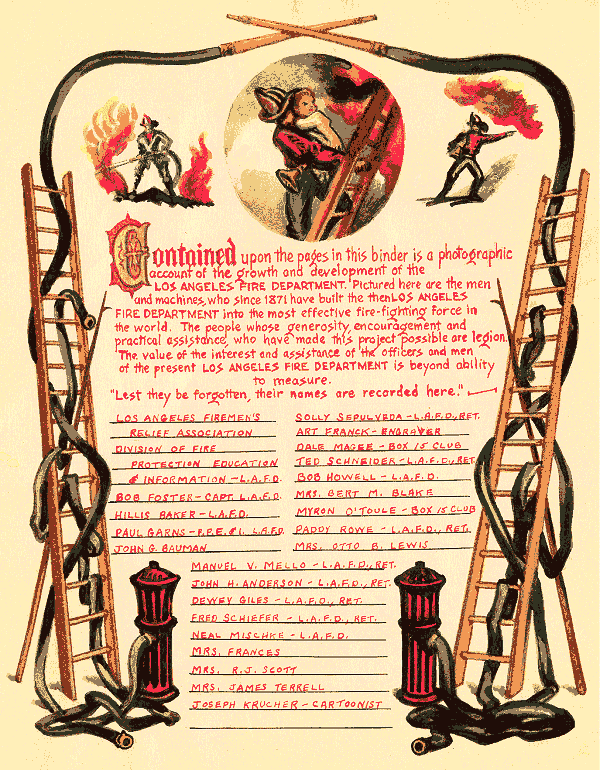 Contained upon the pages in this binder is a photographic
account of the growth and development of the
LOS ANGELES FIRE DEPARTMENT. Pictured here are the men
and machines, who since 1871 have built the then LOS ANGELES
FIRE DEPARTMENT into the most effective fire-fighting force in
the world. The people whose generosity, encouragement and
practical assistance, who have made this project possible are legion.
The value of the interest and assistance of the officers and men
of the present LOS ANGELES FIRE DEPARTMENT is beyond ability
to measure.
"Lest they be forgotten, their names are recorded here."
LOS ANGELES FIREMEN'S
RELIEF ASSOCIATION
DIVISION OF FIRE
PROTECTION EDUCATION
& INFORMATION - L.A.F.D.
BOB FOSTER - CAPT. L.A.F.D.
HILLIS BAKER - L.A.F.D.
PAUL GARNS - F.P.E. & I. L.A.F.D.
JOHN G. BAUMAN
SOLLY SEPULVEDA - L.A.F.D., RET.
ART FRANCK - ENGRAVER
DALE MAGEE - BOX 15 CLUB
TED SCHNEIDER - L.A.F.D., RET.
BOB HOWELL - L.A.F.D.
MRS. BERT M. BLAKE
MYRON O'TOULE - BOX 15 CLUB
PADDY ROWE - L.A.F.D., RET.
MRS. OTTO B. LEWIS
MANUEL V. MELLO - L.A.F.D., RET.
JOHN H. ANDERSON - L.A.F.D., RET.
DEWEY GILES - L.A.F.D., RET.
FRED SCHIEFER - L.A.F.D., RET.
NEAL MISCHKE - L.A.F.D.
MRS. FRANCES
MRS. R.J. SCOTT
MRS. JAMES TERRELL
JOSEPH KRUCHER - CARTOONIST